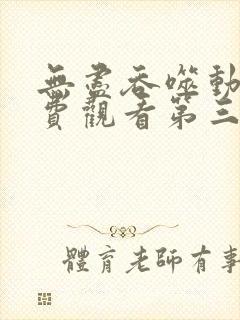 無盡吞噬動
費觀看第三
體育老師有事